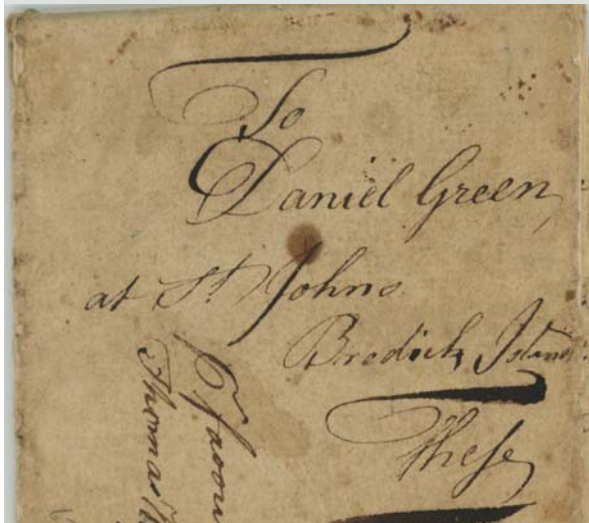 To
Daniel Green
at St Johns
Bredich Island
These
Favou
Thomas